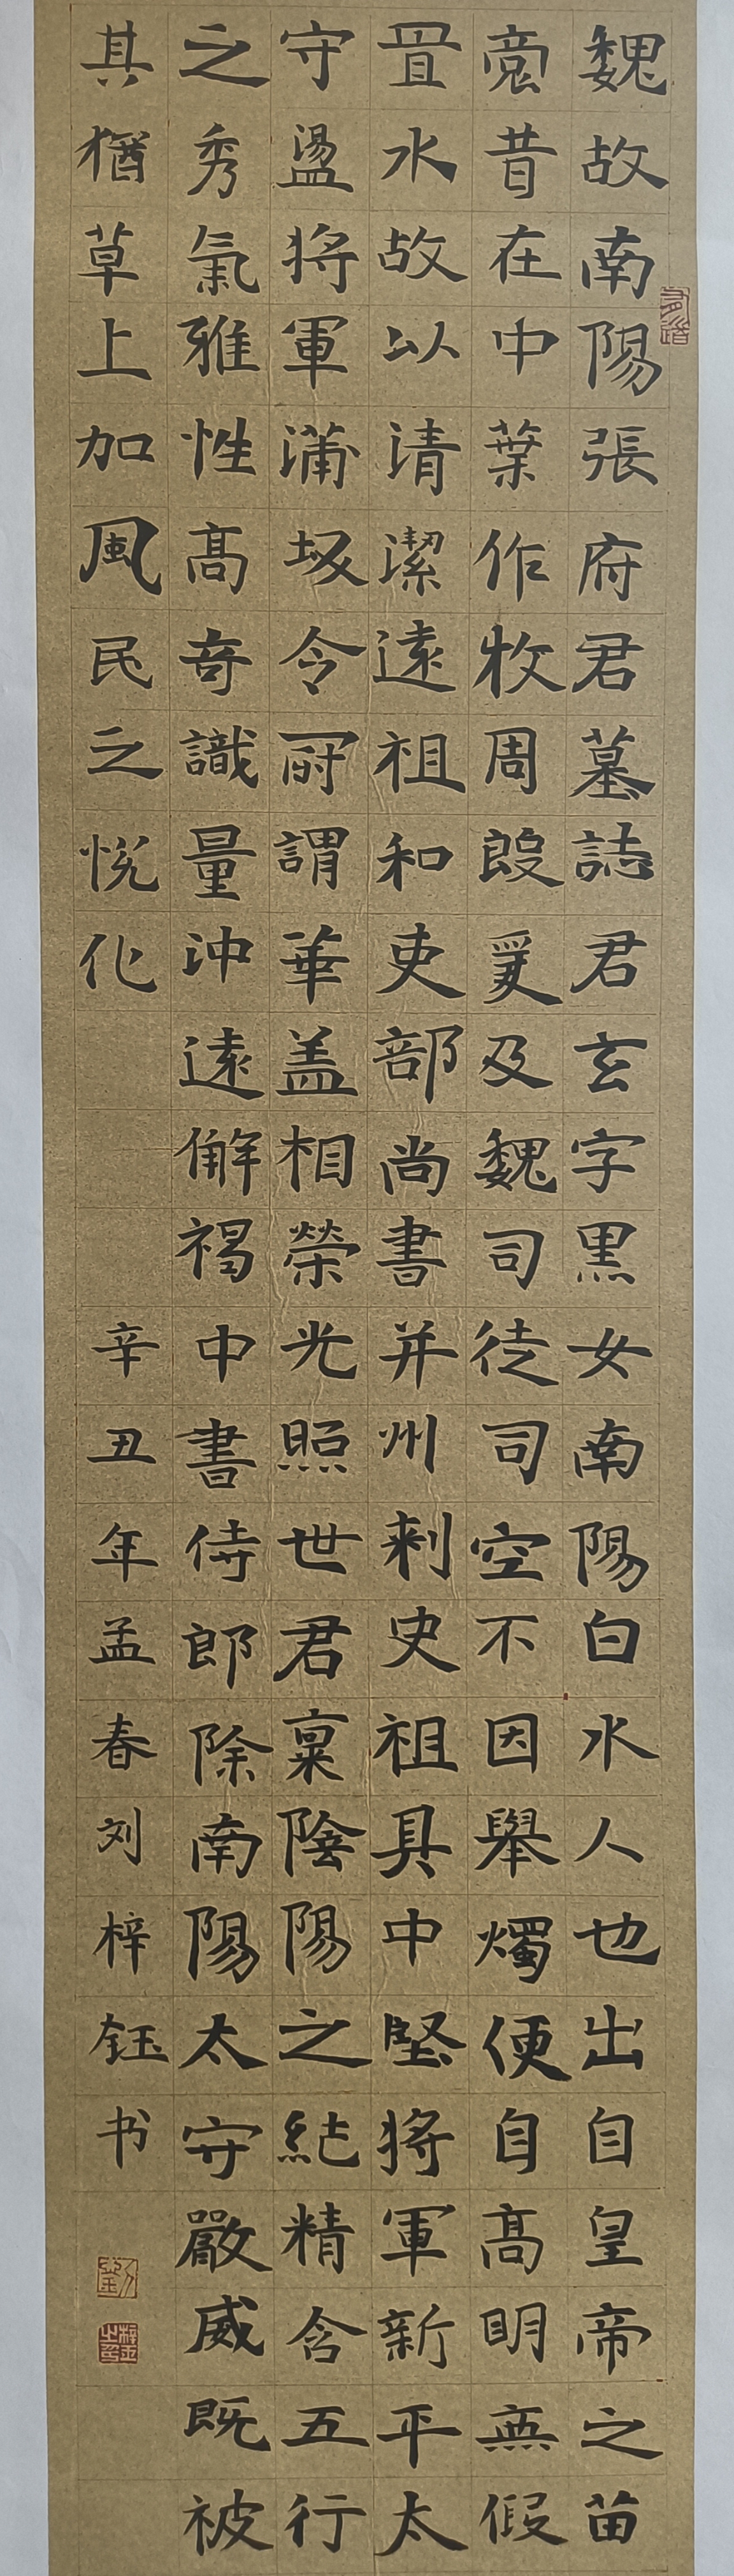 魏故南陽張府君墓誌君玄字黑女南陽白水人也出自皇帝之苗
裔昔在中葉作牧周殷爰及魏司徒司空不因舉燭便自高明無假
置水故以清潔遠祖和吏部尚書并州刺史祖具中堅將軍新平太
守盪將軍蒲坂令所謂華盖相榮光照世君稟陰陽之純精含五行
之秀氣雅性高奇識量沖遠解褐中書侍郎除南陽太守嚴威既被
其猶草上加風民之悅化
辛丑年孟春刘梓钰书
劉